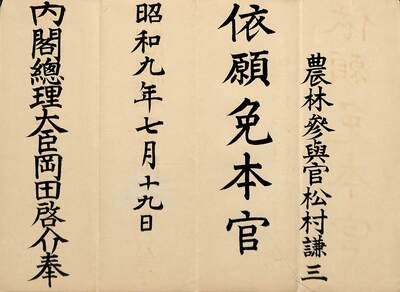 農林參與官松村謙三
依願免本官
昭和九年七月十九日
內閣總理大臣岡田啓介奉